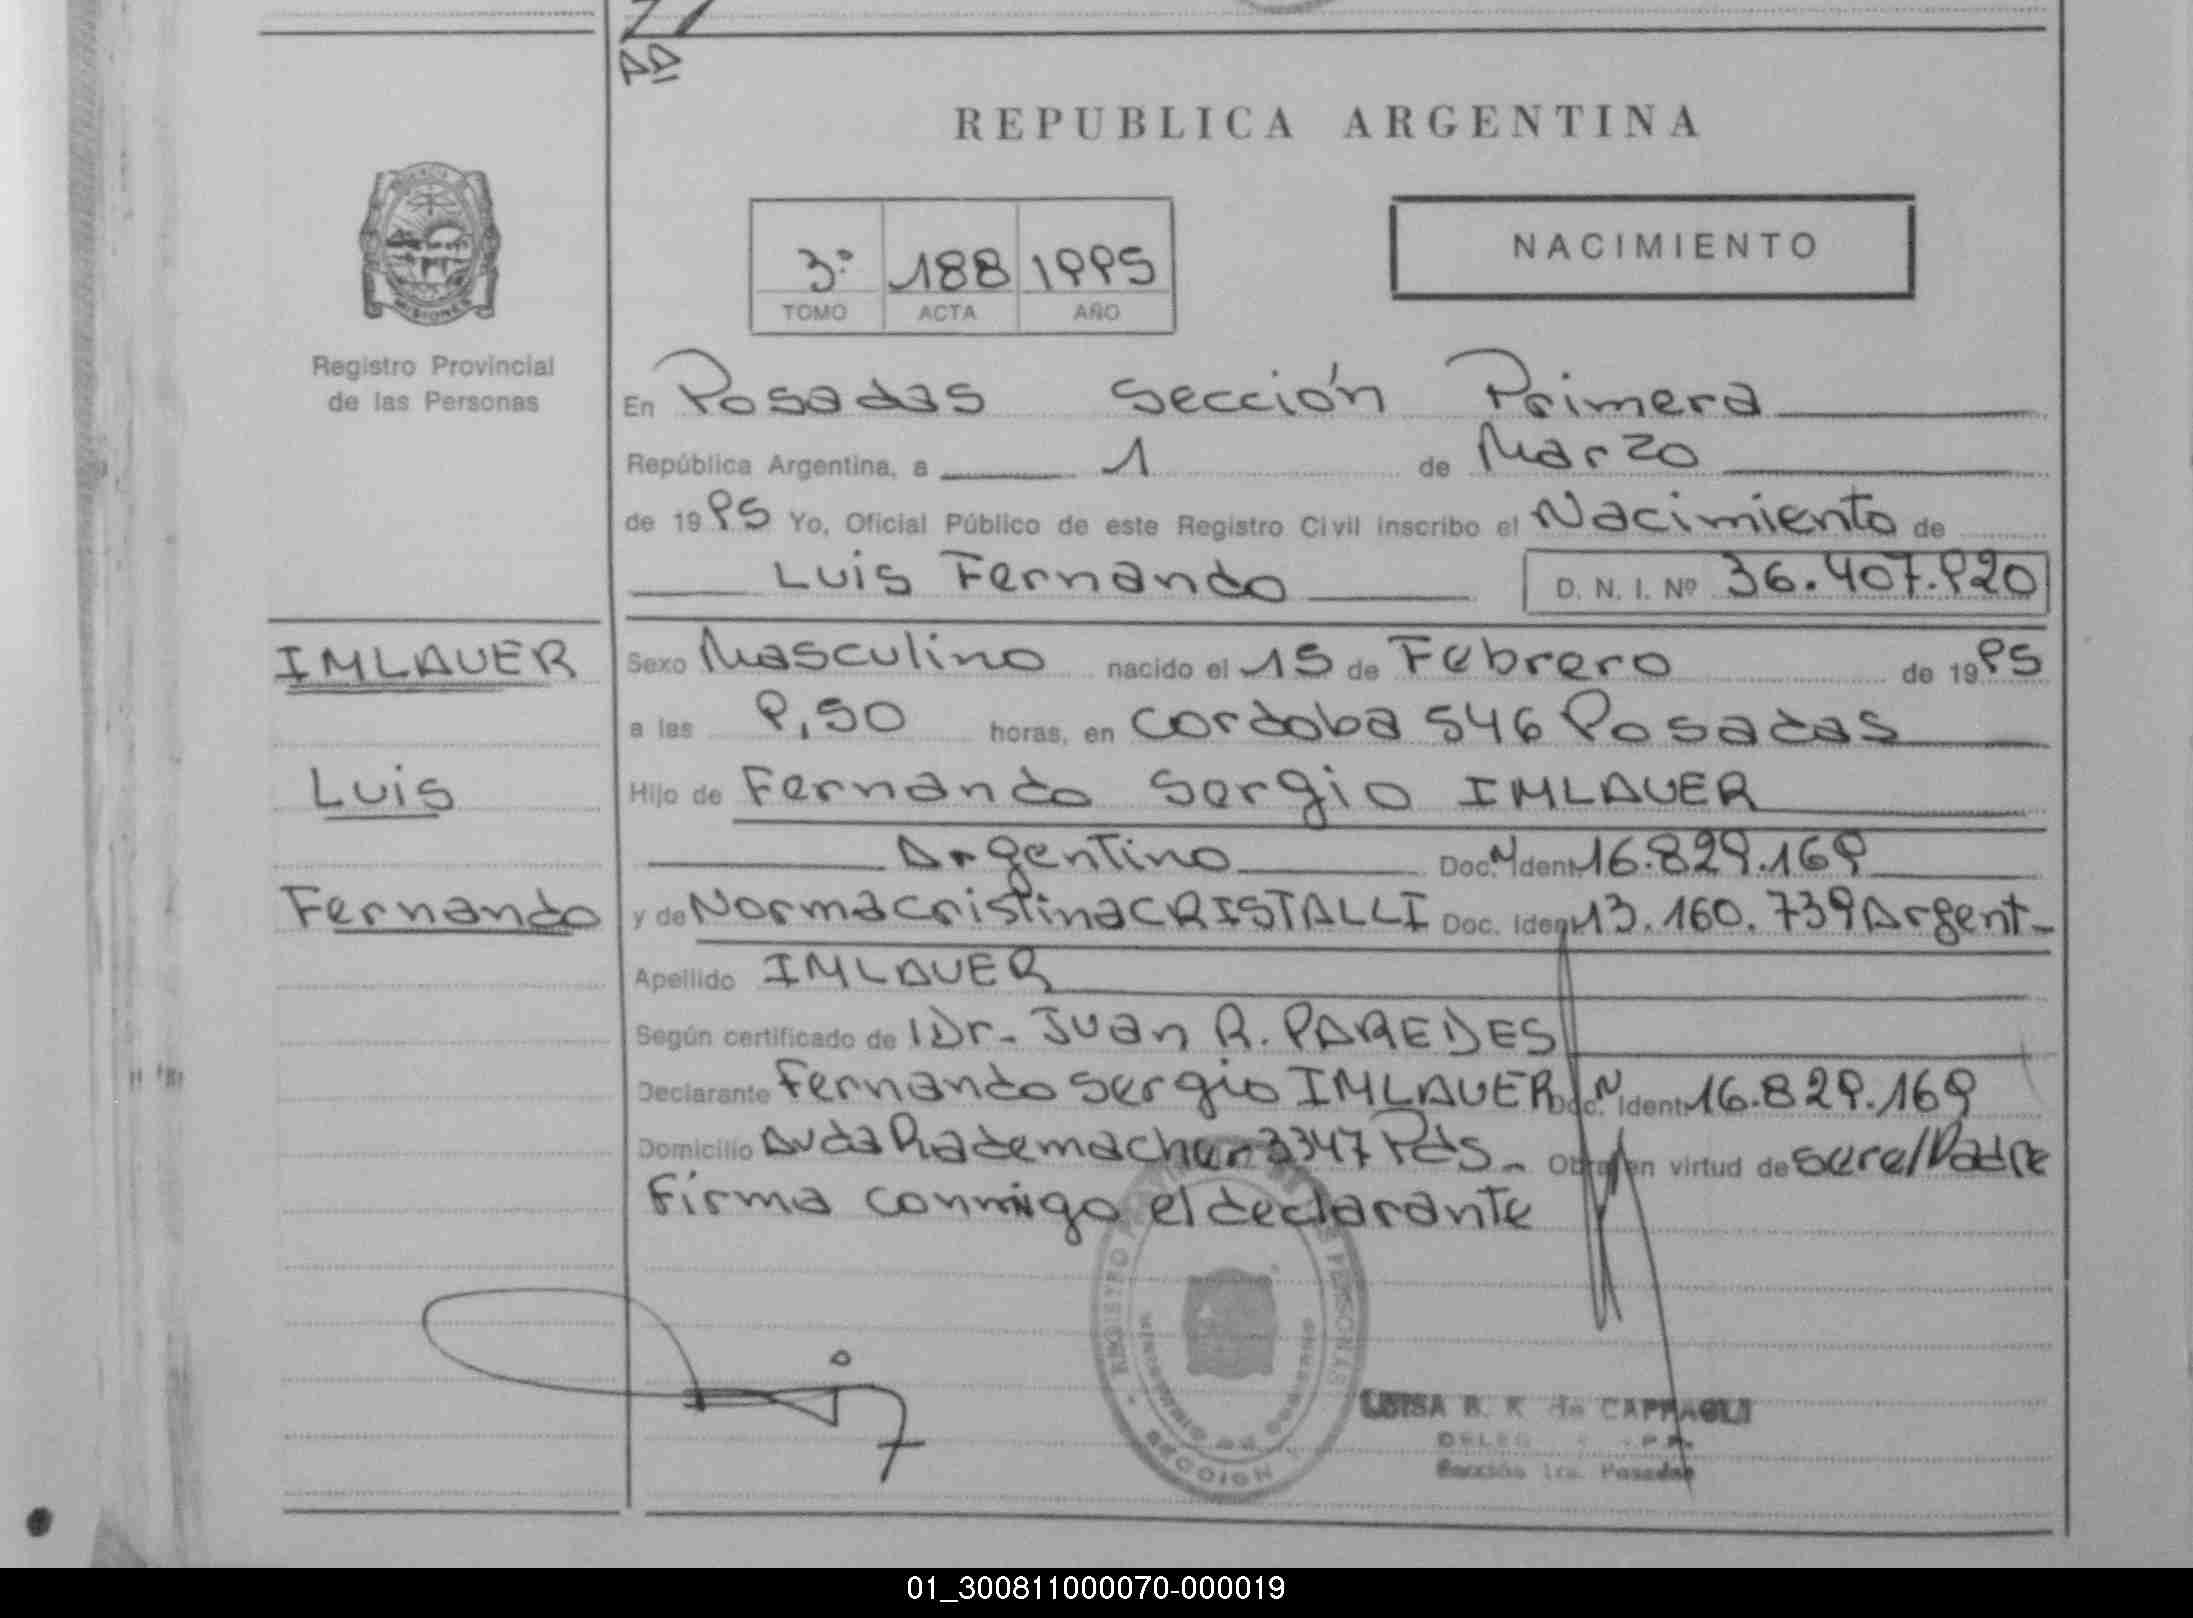 REPUBLICA ARGENTINA
3º 188 1995
TOMO ACTA AÑO
NACIMIENTO
MISIONES
Registro Provincial
de las Personas
En Posadas Sección Primera
República Argentina, a 1 de Marzo
de 1995 Yo, Oficial Público de este Registro Civil inscribo el Nacimiento de
Luis Fernando D. N. I. Nº 36.407.920
IMLAUER
Luis
Fernando
Sexo Masculino nacido el 15 de Febrero de 1995
a las 9,50 horas, en Cordoba 546 Posadas
Hijo de Fernando Sergio IMLAUER
Argentino Doc. N Ident. 16.829.169
y de Norma Cristina CRISTALLI Doc. Ident. 13.160.739 Argent-
Apellido IMLAUER
Según certificado de Dr. Juan R. PAREDES
Declarante Fernando Sergio IMLAUER Doc. N Ident. 16.829.169
Domicilio Avda Rademacher 3347 Pds- Obra en virtud de ser el Padre
Firma conmigo el declarante
REGISTRO PROVINCIAL DE LAS PERSONAS
MINISTERIO DE GOBIERNO
SECCION 1
LUISA B. K de
Sección 1ra. Posadas
01_300811000070-000019